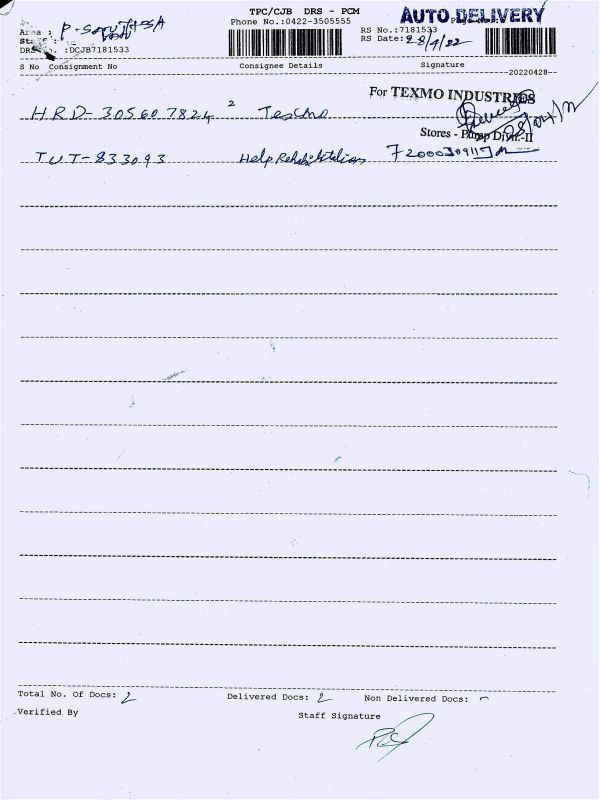 TPC/CJB DRS - PCM
AUTO DELIVERY
Phone No.:0422-3505555
RS No.:7181533
RS Date: 28/4/22
:DCJB7181533
S No Consignment No Consignee Details Signature
20220428
For TEXMO INDUSTRIES
HRD-305607824 2 Texmo
Stores - Pump Divn.-II
TUT-833093 Help Rehabilitation
Total No. Of Docs: 2 Delivered Docs: 2 Non Delivered Docs: -
Verified By Staff Signature